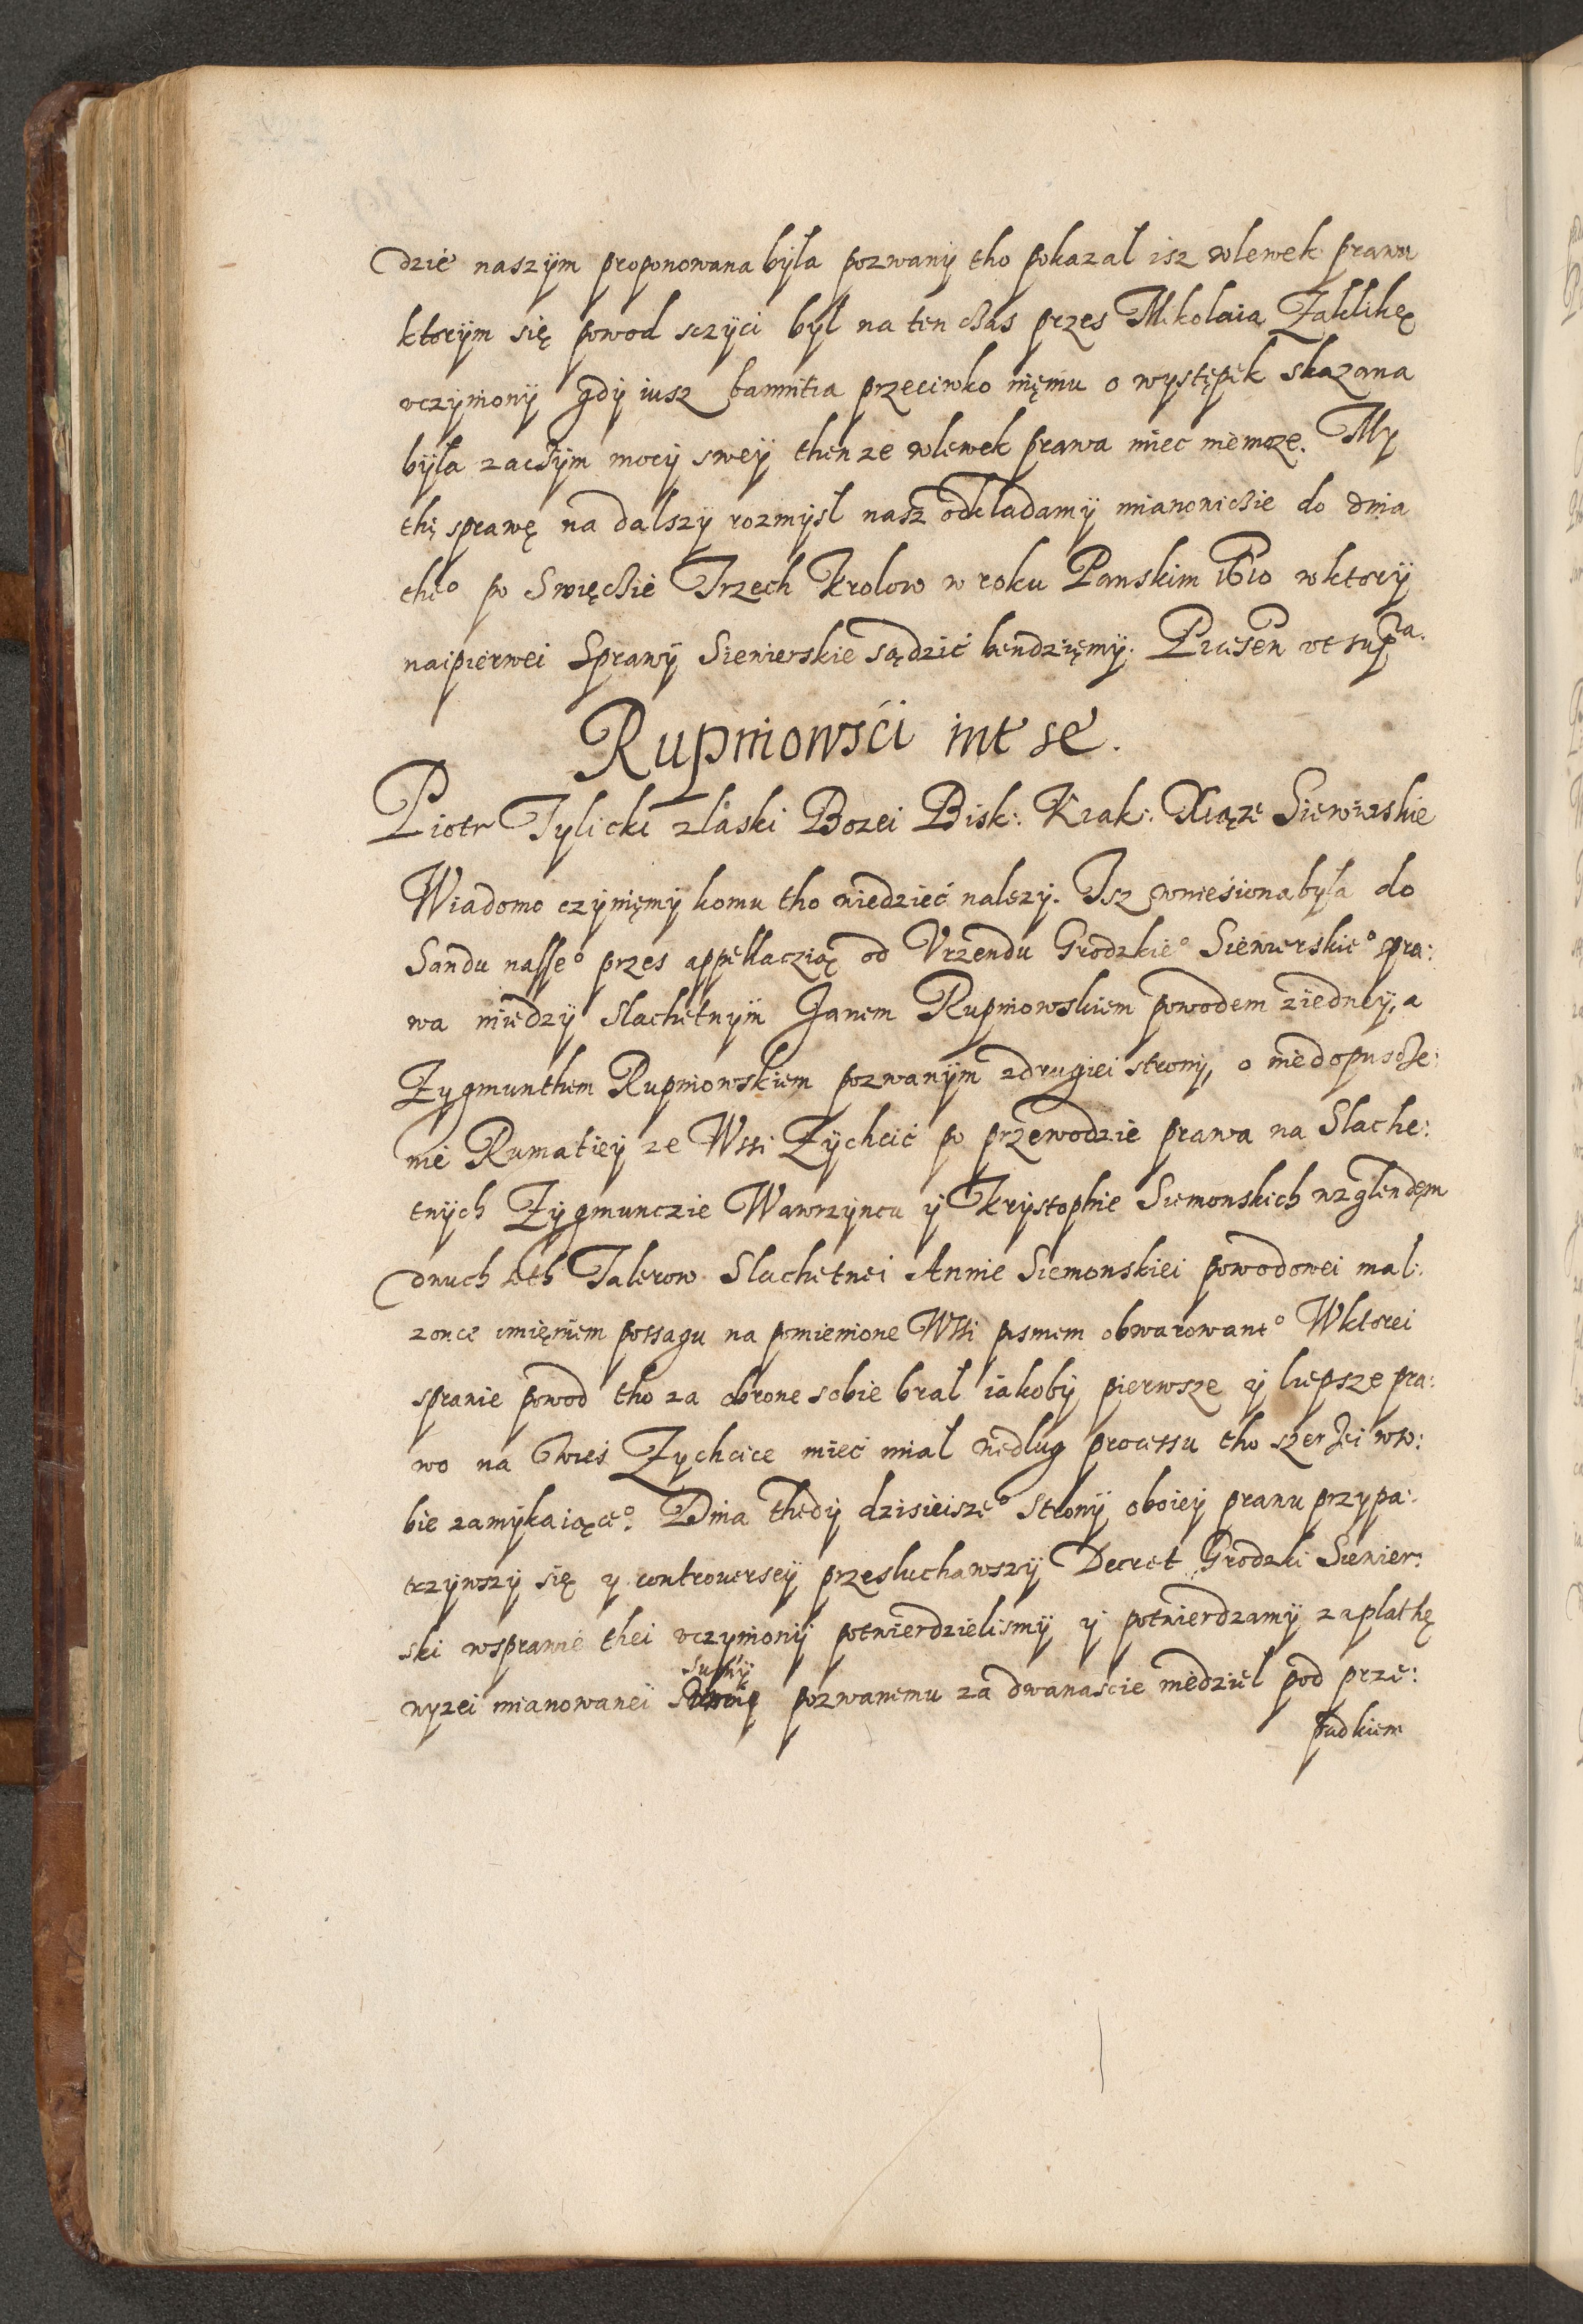 dzie naszÿm proponowana bÿla pozwanÿ tho pokazal isz wlewek prawa
ktorÿm się powod sczÿci bÿl na ten czas przes Mikolaia Zaklikę
vczÿnionÿ gdÿ iusz bannitia przeciwko nięmu o występek skazana
bÿla zaczÿm mocÿ sweÿ thenze wlewek prawa miec niemoze. My
thę sprawę na dalszÿ rozmÿsl nasz odkladamÿ mianowiczie do dnia
the° po Swięczie Trzech Krolow w roku Panskim 1610 w ktorÿ
naipierwei Sprawÿ Siewierskie sądzić bendzięmÿ. Præsen vt supra.
Rupniowsci int se.
Piotr Tylicki z laski Bozei Bisk: Krak: Xiąze Siewirskie
Wiadomo czÿnięmÿ komu tho wiedzieć nalezÿ. Isz wniesiona bÿla do
Sandu nasse° przes appellaczią od Vrzendu Grodzkie° Siewierskie° spra:
wa miedzÿ slachetnÿm Janem Rupniowskiem powodem ziedneÿ, a
Zÿgmunthem Rupniowskiem pozwanÿm z drugiei stronÿ, o niedopuscze:
nie Rumatieÿ ze Wssi Zÿchcić po przewodzie prawa na Slache:
tnÿch Zÿgmunczie Wawrzÿncu ÿ Krÿstophie Siemonskich wzglendęm
dwuch seth Talerow Slachetnei Annie Siemonskiei powodowei mal:
zonce imięniem possagu na pomienione Wssi pismem obwarowane° W ktorei
sprawie powod tho za obrone sobie bral iakobÿ pierwsze ÿ liepsze pra:
wo na Wies Zÿchcice mieć mial wedlug processu tho szerzei w so:
bie zamÿkaiące°. Dnia thedÿ dzisieisze° Stronÿ oboieÿ prawu przÿpa:
trzÿwszÿ się ÿ controuerseÿ przesluchawszÿ Decret Grodzki Siewier:
ski wsprawie thei vczÿnionÿ potwierdzielismÿ ÿ potwierdzamÿ zaplathę
wÿzei mianowaneÿ Sumÿ pozwanemu za dwanascie niedziel pod prze:
padkiem